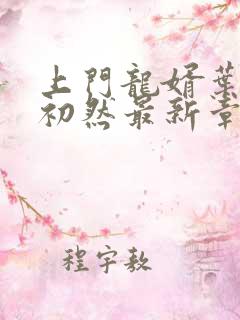 上門龍婿葉
初然最新章
程宇敖